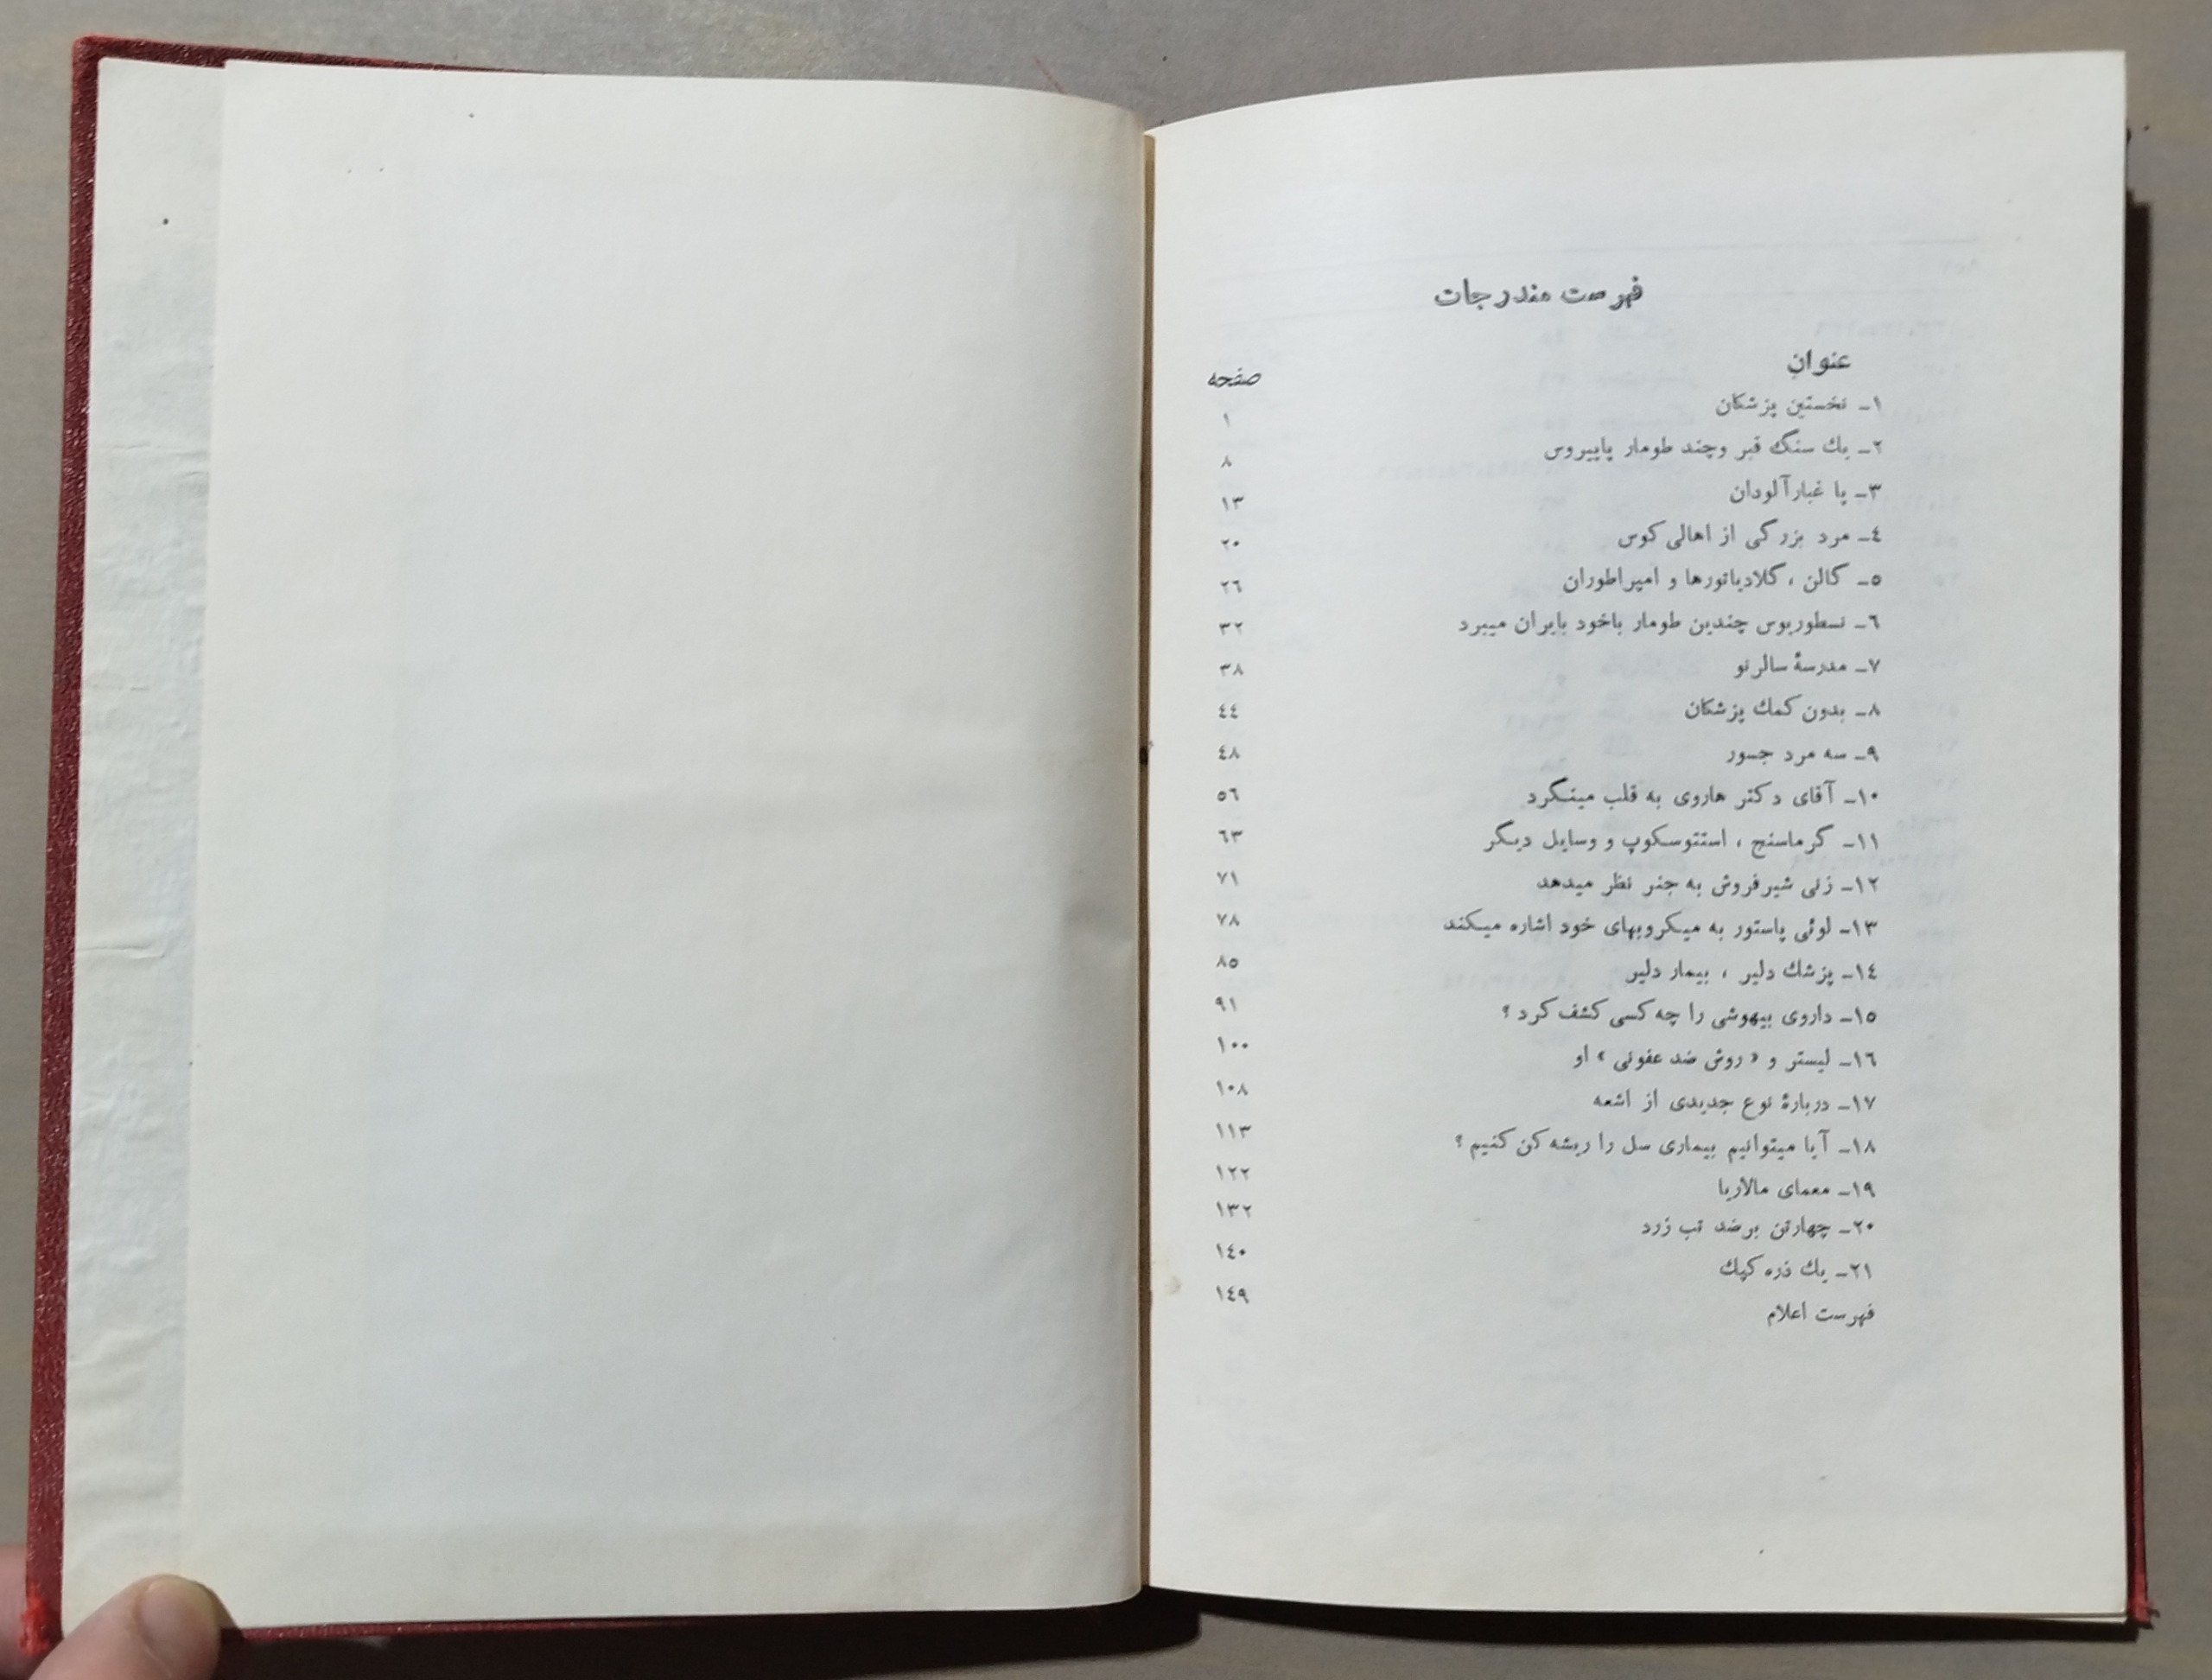 فهرست مندرجات
عنوان صفحه
۱ـ نخستین پزشکان ۱
۲ـ یك سنگ قبر وچند طومار پاپیروس ۸
۳ـ پا غبارآلودان ۱۳
٤ـ مرد بزرگی از اهالی کوس ۲۰
٥ـ گالن ، گلادیاتورها و امپراطوران ۲٦
٦ـ نسطوریوس چندین طومار باخود بایران میبرد ۳۲
۷ـ مدرسهٔ سالرنو ۳۸
۸ـ بدون کمك پزشکان ٤٤
۹ـ سه مرد جسور ٤۸
۱۰ـ آقای دکتر هاروی به قلب مینگرد ٥٦
۱۱ـ گرماسنج ، استتوسکوپ و وسایل دیگر ٦۳
۱۲ـ زنی شیرفروش به جنر نظر میدهد ۷۱
۱۳ـ لوئی پاستور به میکروبهای خود اشاره میکند ۷۸
۱٤ـ پزشك دلیر ، بیمار دلیر ۸٥
۱٥ـ داروی بیهوشی را چه کسی کشف کرد ؟ ۹۱
۱٦ـ لیستر و « روش ضد عفونی » او ۱۰۰
۱۷ـ دربارهٔ نوع جدیدی از اشعه ۱۰۸
۱۸ـ آیا میتوانیم بیماری سل را ریشه کن کنیم ؟ ۱۱۳
۱۹ـ معمای مالاریا ۱۲۲
۲۰ـ چهارتن برضد تب زرد ۱۳۲
۲۱ـ یك ذره کپك ۱٤۰
فهرست اعلام ۱٤۹